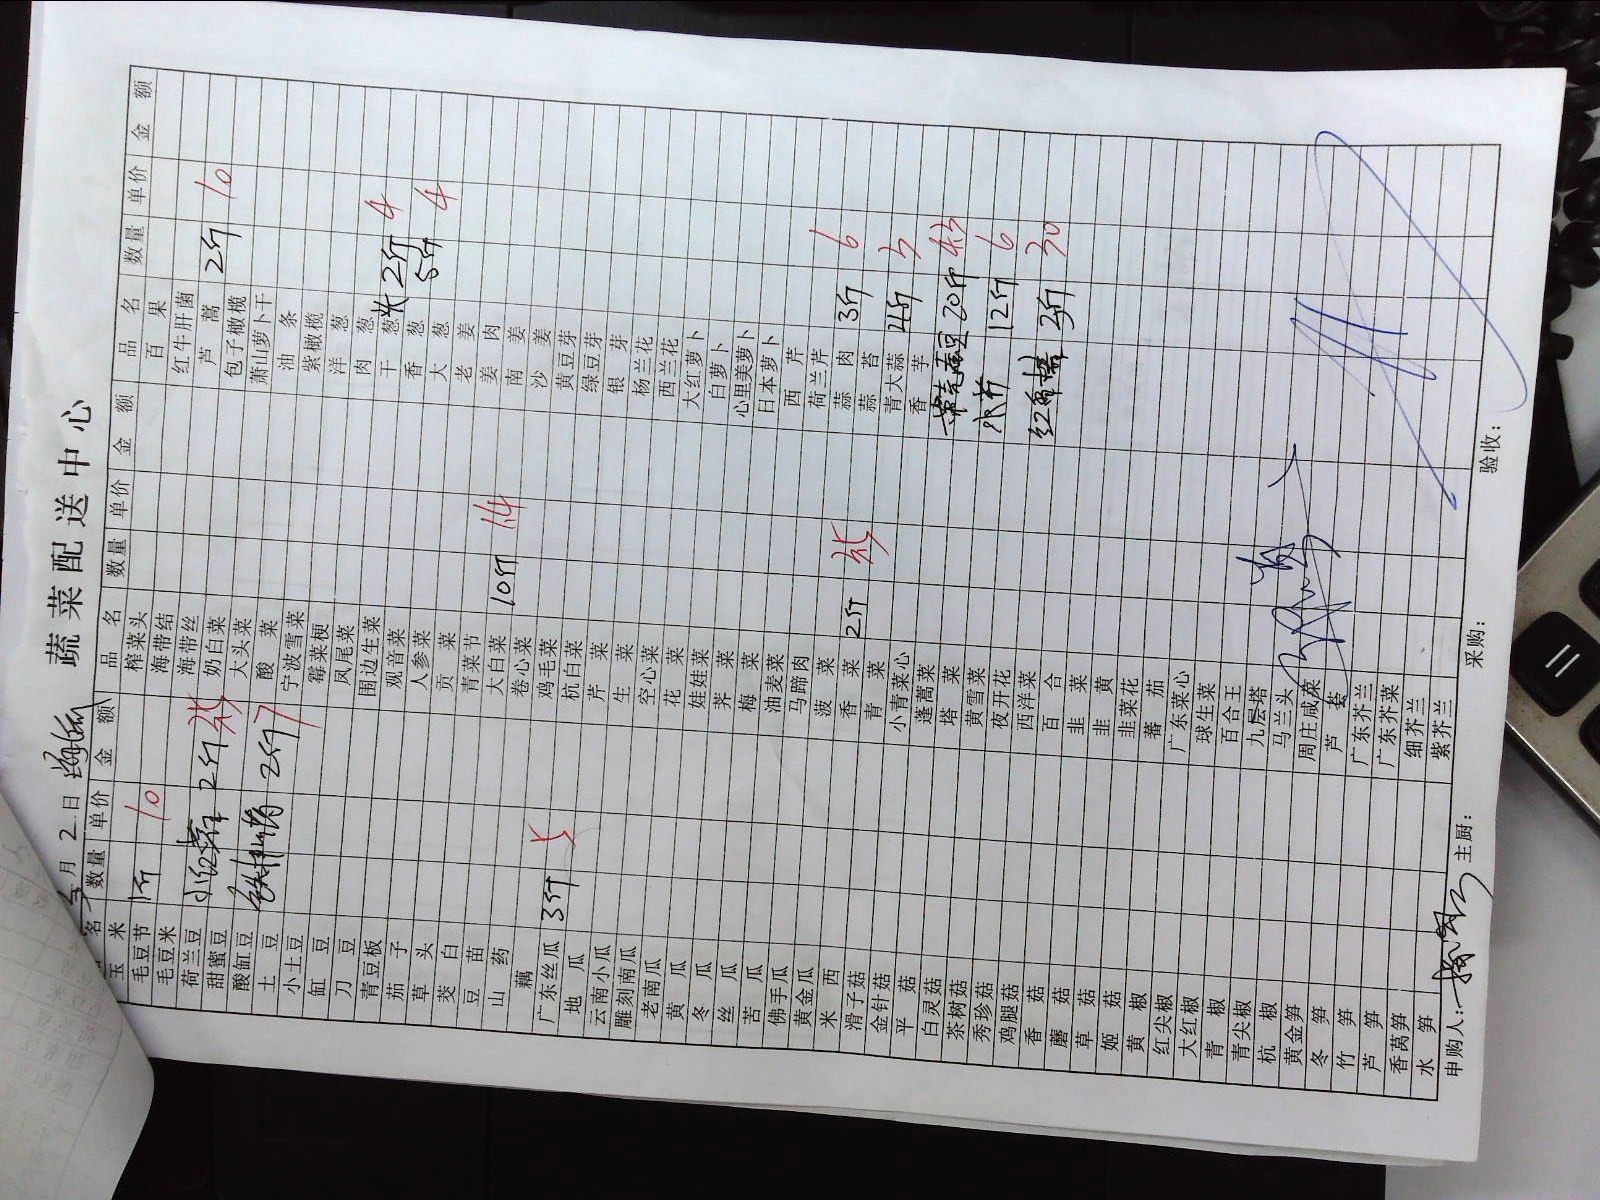 蔬菜配送中心
月 2 日
名 数量 单价 金额 品名 数量 单价 金额 品名 数量 单价 金额
玉米 榨菜头 百果
毛豆节 1斤 10 海带结 红牛肝菌
毛豆米 海带丝 芦蒿 2斤 10
荷兰豆 2斤 奶白菜 包子橄榄
甜蜜豆 大头菜 萧山萝卜干
酸缸豆 铁棍山药 2斤 7 酸菜 油条
土豆 宁波雪菜 紫橄榄
小土豆 霉菜梗 洋葱
缸豆 凤尾菜 肉葱
刀豆 围边生菜 干葱 2斤 4
青豆板 观音菜 香葱 5斤 4
茄子 人参菜 大葱
草头 贡菜 老姜
茭白 青菜节 姜肉
豆苗 大白菜 10斤 14 南姜
山药 卷心菜 沙姜
藕 鸡毛菜 黄豆芽
广东丝瓜 3斤 5 杭白菜 绿豆芽
地瓜 芹菜 银芽
云南小瓜 生菜 杨兰花
雕刻南瓜 空心菜 西兰花
老南瓜 花菜 大红萝卜
黄瓜 娃娃菜 白萝卜
冬瓜 荠菜 心里美萝卜
丝瓜 梅菜 日本萝卜
苦瓜 油麦菜 西芹
佛手瓜 马蹄肉 荷兰芹
黄金瓜 菠菜 蒜肉 3斤 6
米西 香菜 2斤 蒜苔
滑子菇 青菜 青大蒜 4斤 5
金针菇 小青菜心 香芋
平菇 蓬蒿菜 20斤
白灵菇 塔菜
茶树菇 黄雪菜 12斤 6
秀珍菇 夜开花
鸡腿菇 西洋菜 3斤 30
香菇 百合
蘑菇 韭菜
草菇 韭黄
姬菇 韭菜花
黄椒 蕃茄
红尖椒 广东菜心
大红椒 球生菜
青椒 百合王
青尖椒 九层塔
杭椒 马兰头
黄金笋 周庄咸菜
冬笋 芦荟
竹笋 广东芥兰
芦笋 广东芥菜
香莴笋 细芥兰
水笋 紫芥兰
申购人: 主厨: 采购: 验收: